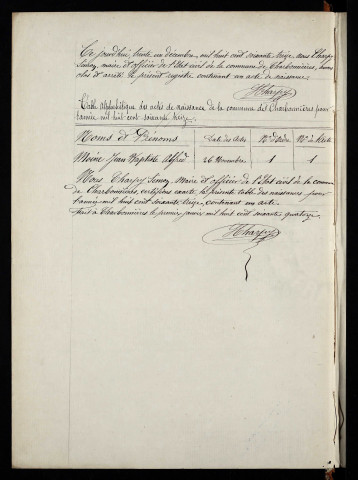 Ce jourd'hui, trente un décembre, mil huit cent soixante treize, nous Tharpy
maire et officier de l'état civil de la commune de Charbonnières, avons
clos et arrêté le présent registre contenant un acte de naissance.
Tharpy
Table alphabétique des actes de naissance de la commune de Charbonnières pour
l'année mil huit cent soixante treize.
Noms et Prénoms Date des Actes Nos d'ordre
Moine Jean Baptiste 26 Novembre 1 1
Nous Tharpy maire et officier de l'état civil de la commune
de Charbonnières, certifions exacte la présente table des naissances pour
l'année mil huit cent soixante treize, contenant un acte.
Fait à Charbonnières le premier janvier mil huit cent soixante quatorze.
Tharpy